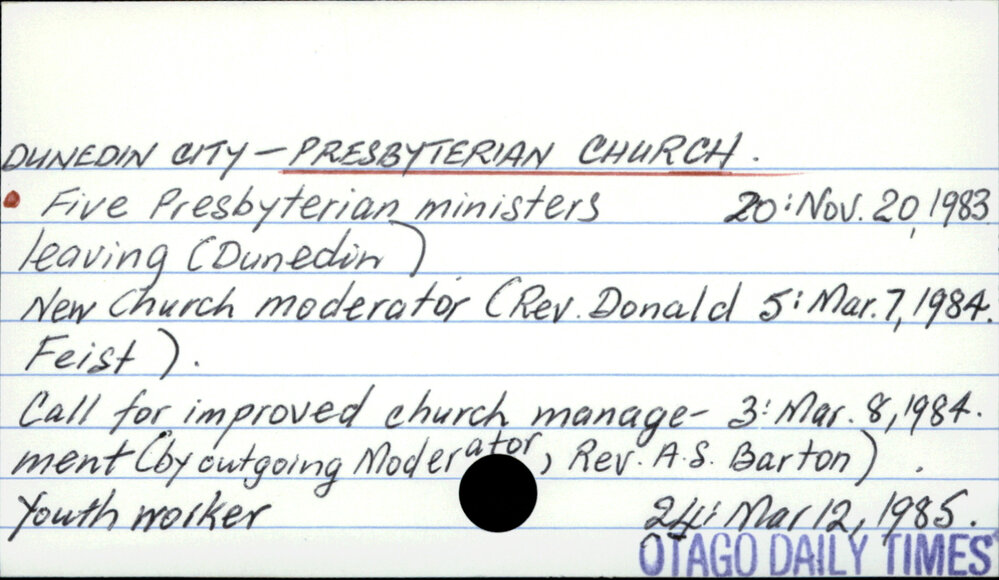 DUNEDIN CITY – PRESBYTERIAN CHURCH.
• Five Presbyterian ministers 20: Nov. 20, 1983
leaving (Dunedin)
New Church moderator (Rev. Donald 5: Mar. 7, 1984.
Feist).
Call for improved church manage- 3: Mar. 8, 1984.
ment (by outgoing Moderator, Rev. A.S. Barton).
Youth worker 24: Mar 12, 1985.
OTAGO DAILY TIMES